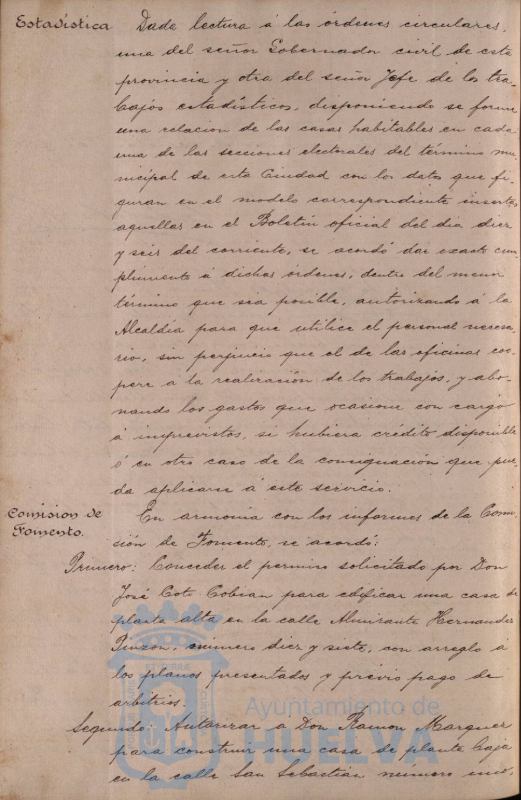 Estadística
Dada lectura á las órdenes circulares,
una del señor Gobernador civil de esta
provincia y otra del señor Jefe de los tra-
bajos estadísticos, disponiendo se forme
una relacion de las casas habitables en cada
una de las secciones electorales del término mu-
nicipal de esta Ciudad con los datos que fi-
guran en el modelo correspondiente insertos
aquellas en el Boletin oficial del dia diez
y seis del corriente, se acordó dar exacto cum-
plimiento á dichas órdenes, dentro del menor
término que sea posible, autorizando á la
Alcaldía para que utilice el personal necesa-
rio, sin perjuicio que el de las oficinas coo-
pere a la realizacion de los trabajos, y abo-
nando los gastos que ocasione con cargo
á imprevistos, si hubiera crédito disponible
ó en otro caso de la consignacion que pue-
da aplicarse á este servicio.
Comision de
Fomento.
En armonia con los informes de la Comi-
sión de Fomento, se acordó:
Primero: Conceder el permiso solicitado por Don
José Coto Cobian para edificar una casa de
planta alta en la calle Almirante Hernandez
Pinzon, número diez y siete, con arreglo á
los planos presentados y prévio pago de
arbitrios.
Segundo: Autorizar a Don Ramon Marquez
para construir una casa de planta baja
en la calle San Sebastián número uno,
Ayuntamiento de
HUELVA